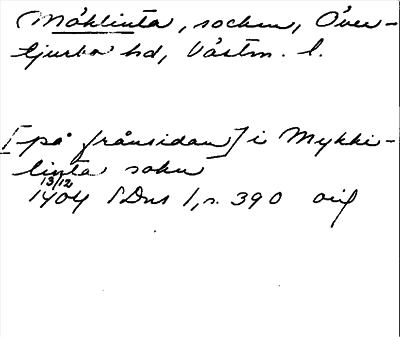 Möklinta, socken, Över-
tjurbo hd, Västm. l.
[på frånsidan] i Mykki-
linta sokn
13/12
1404 SDns 1, s. 390 orig